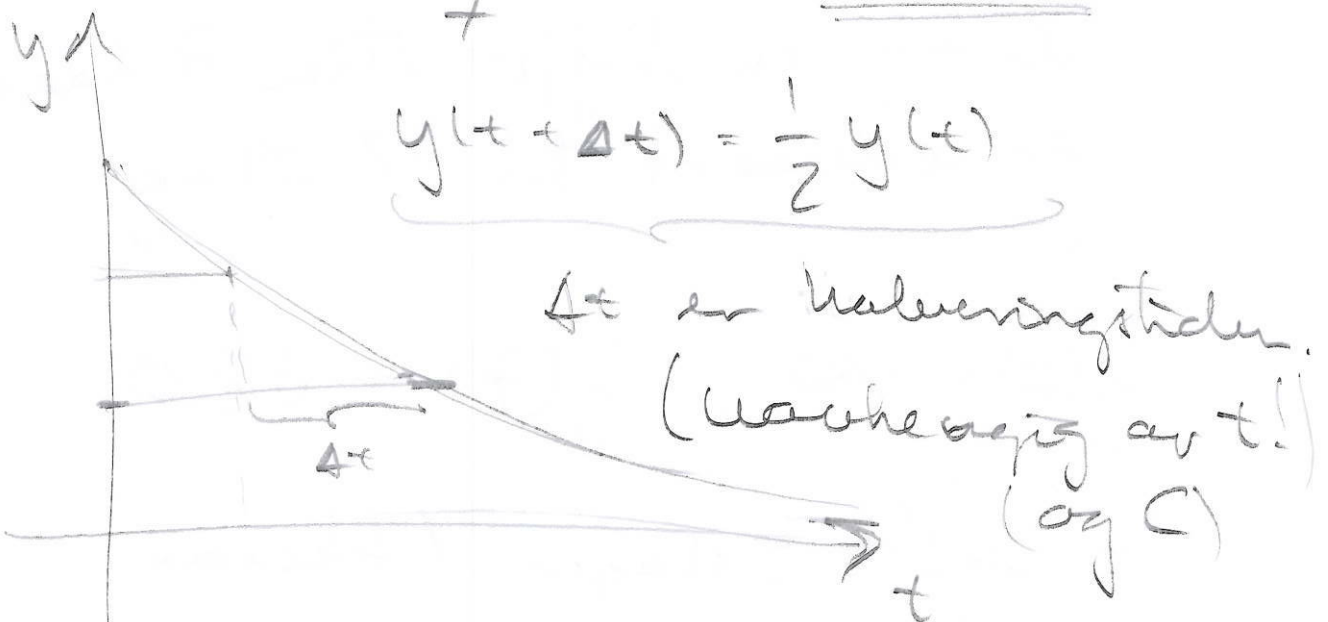 y
y(t + Δt) = 1/2 y(t)
Δt er halveringstiden.
(uavhengig av t!)
(og C)
Δt
t